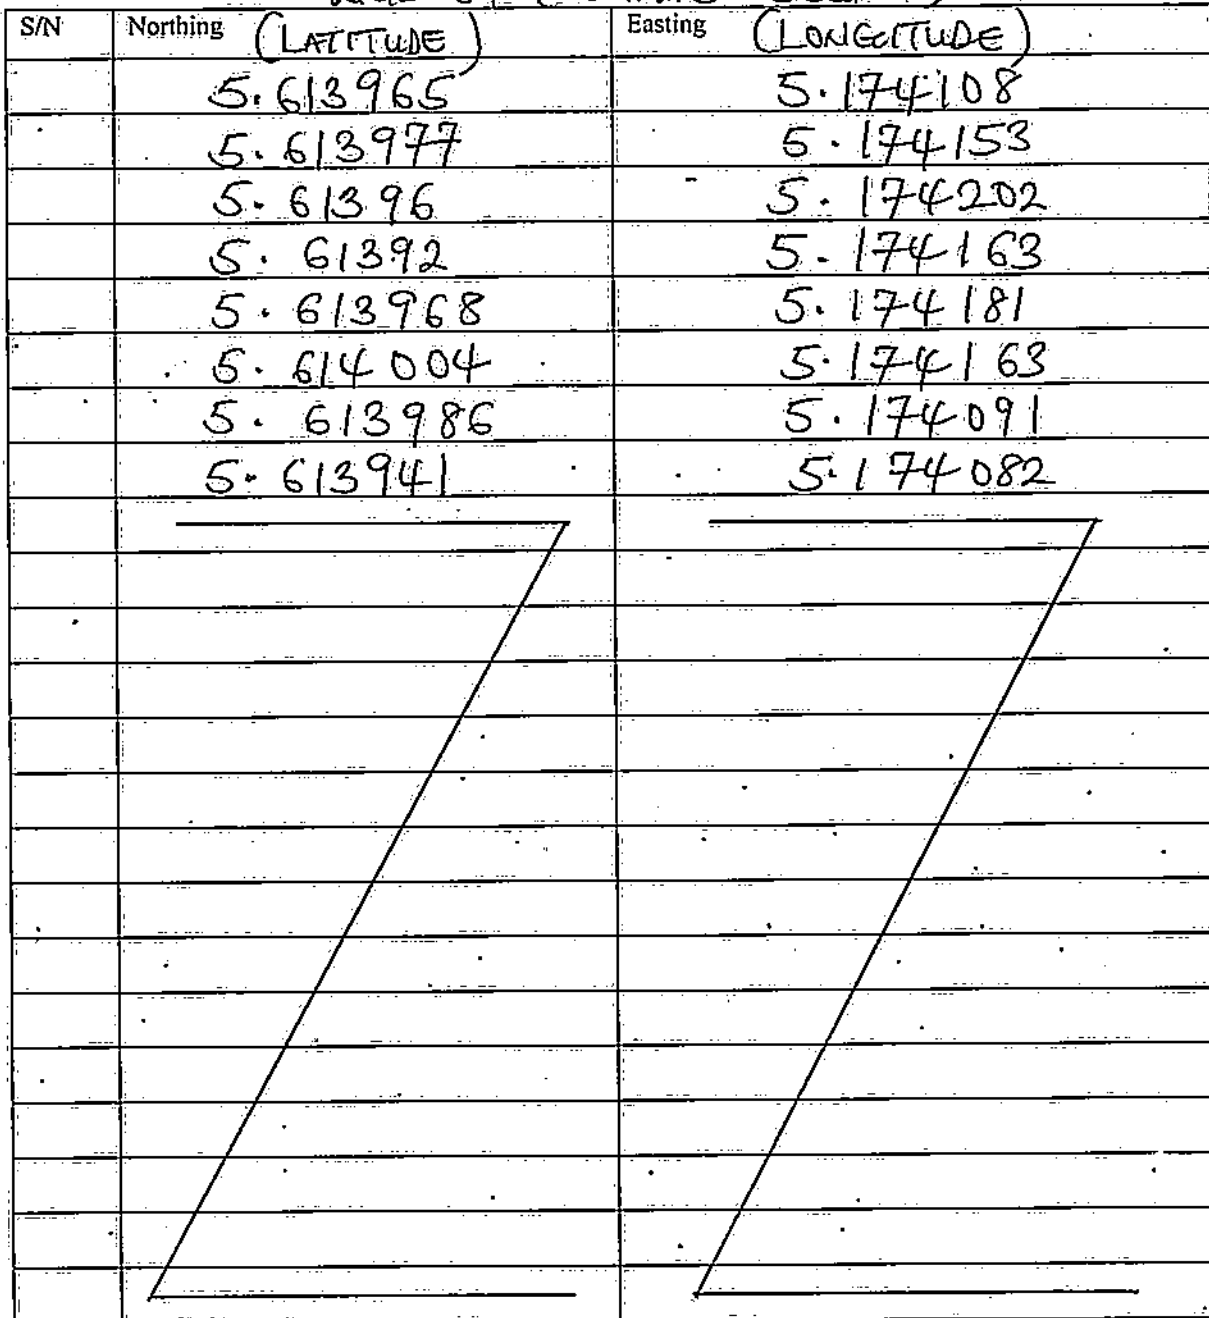 S/N Northing (LATITUDE) Easting (LONGITUDE)
5.613965 5.174108
5.613977 5.174153
5.61396 5.174202
5.61392 5.174163
5.613968 5.174181
5.614004 5.174163
5.613986 5.174091
5.613941 5.174082